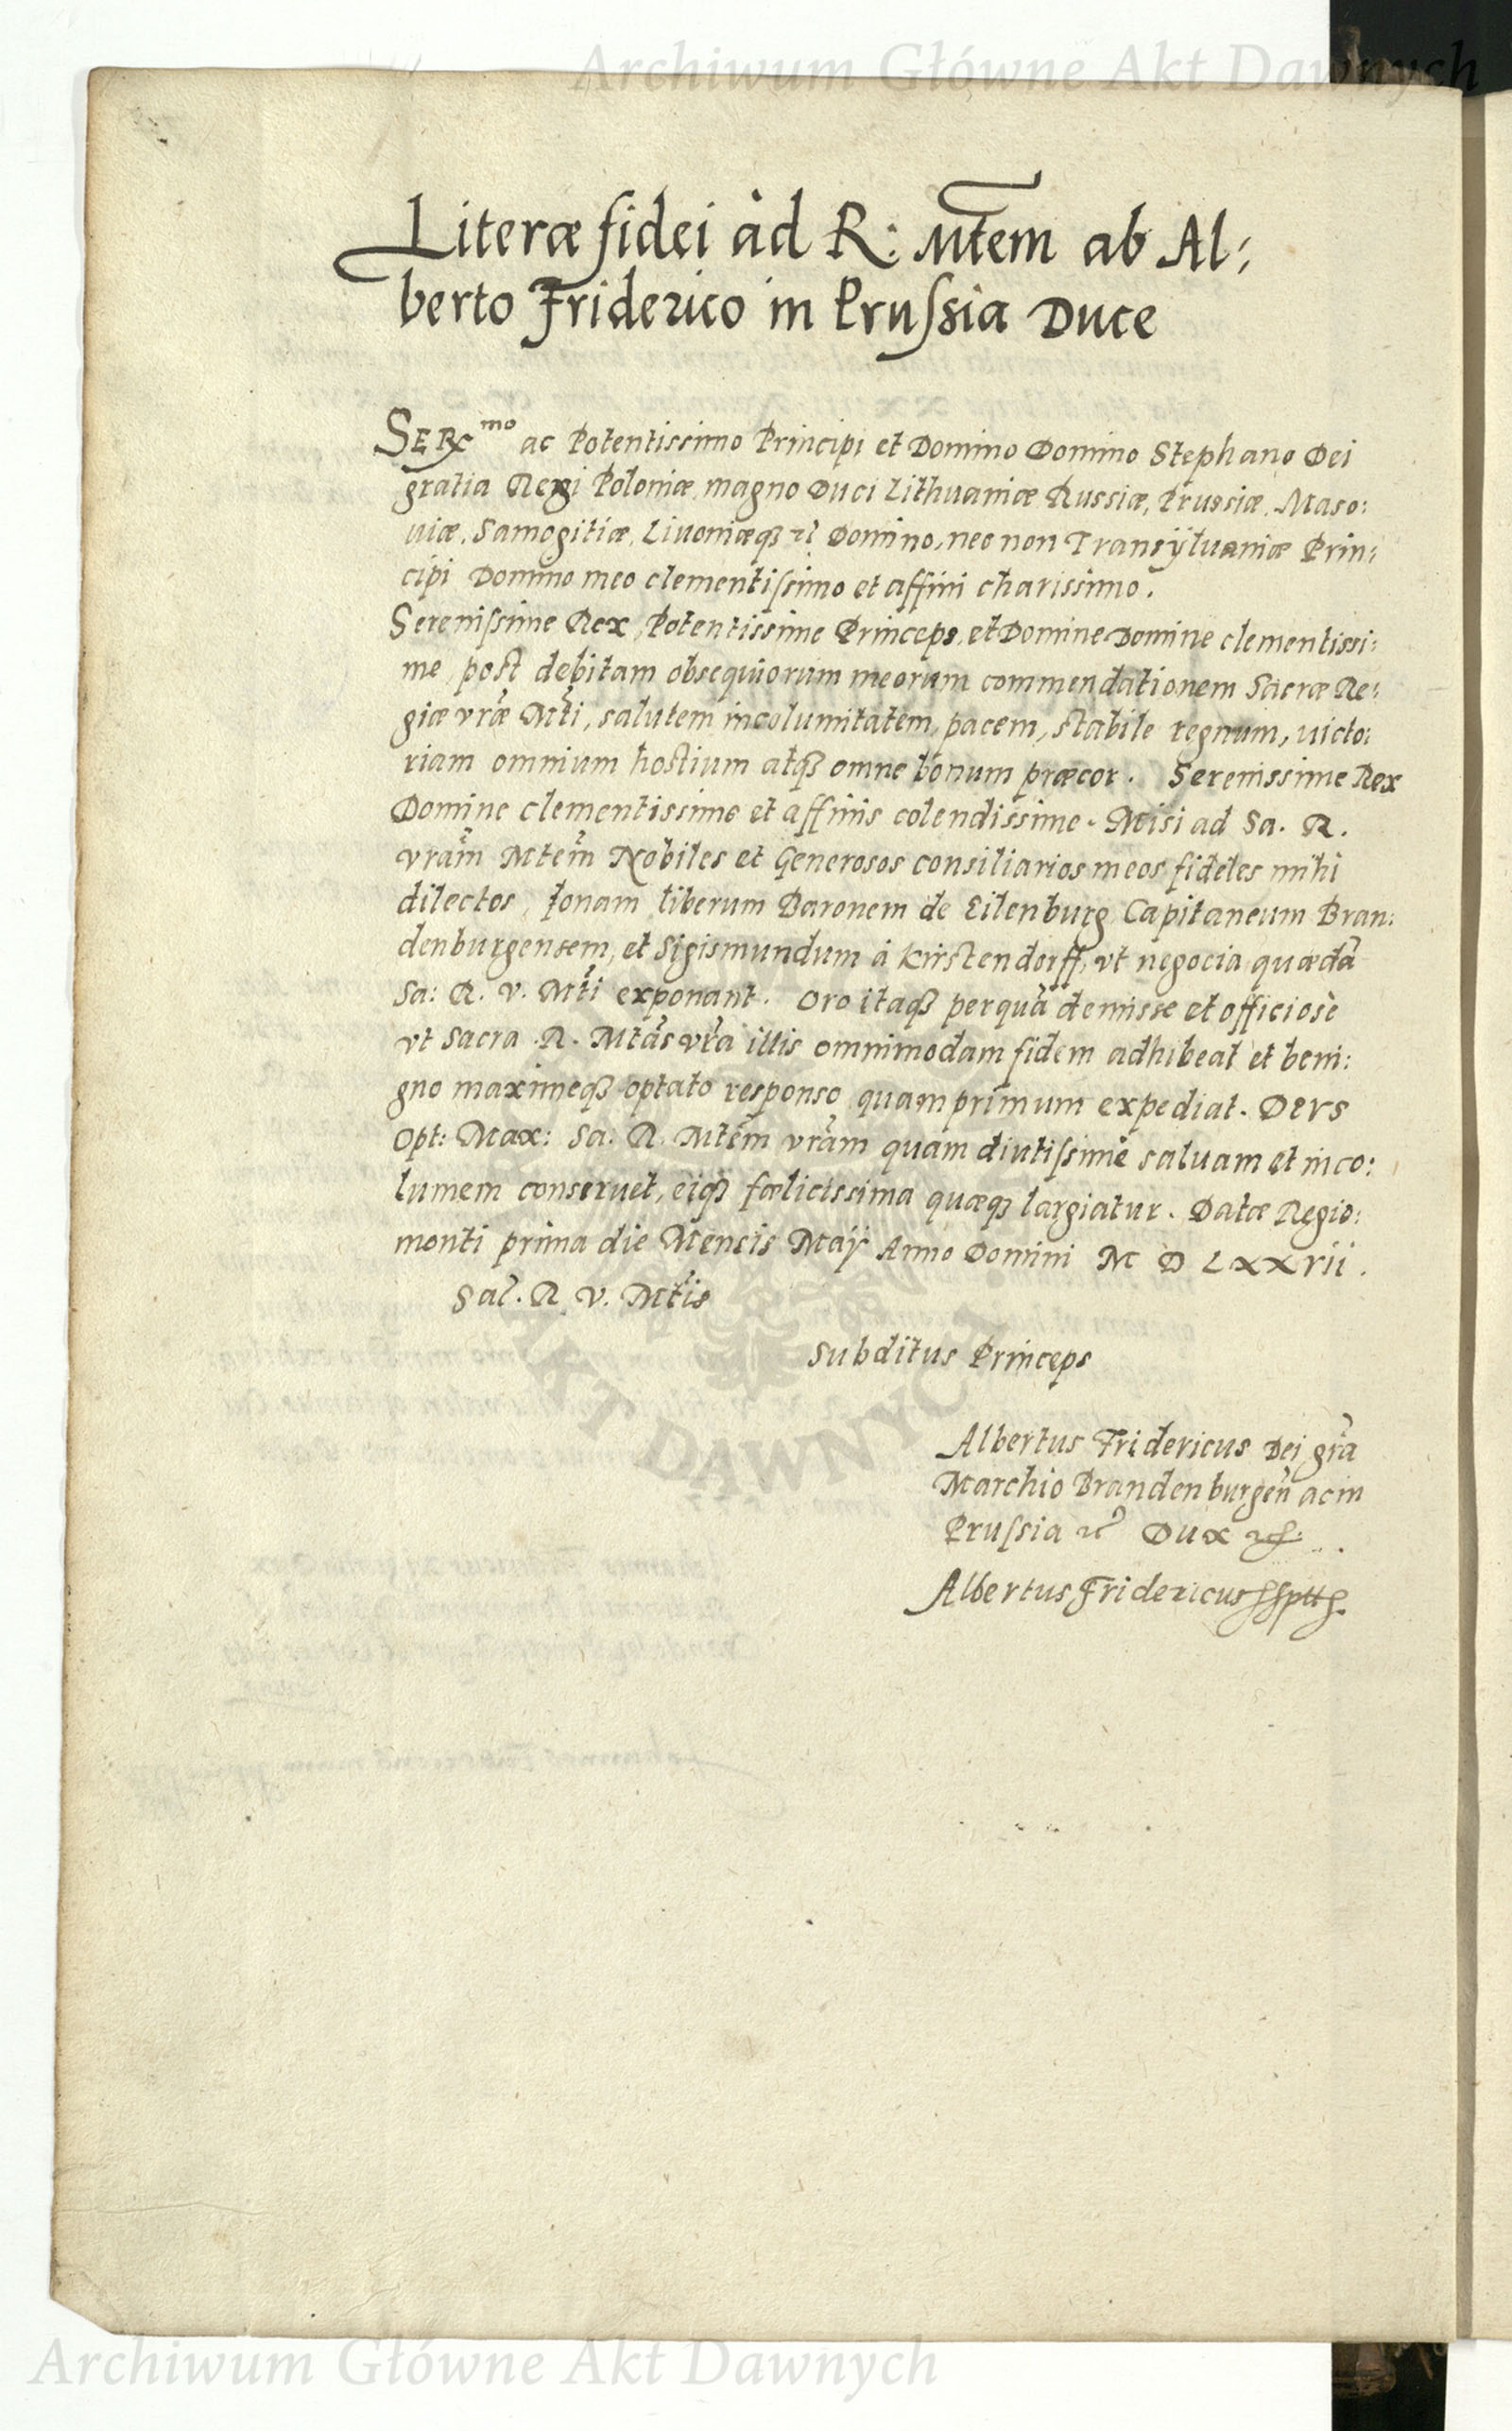 Archiwum Główne Akt Dawnych
Literæ fidei ad R: Mtem ab Al:
berto Friderico in Prussia Duce
SERmo ac Potentissimo Principi et Domino Domino Stephano Dei
gratia Regi Poloniæ, magno Duci Lithuaniæ Russiæ, Prussiæ, Maso:
uiæ, Samogitiæ, Liuoniæq3 etc Domino, nec non Transÿluaniæ Prin:
cipi Domino meo clementissimo et affini charissimo.
Serenissime Rex, Potentissime Princeps, et Domine Domine clementissi:
me, post debitam obsequiorum meorum commendationem Sacræ Re:
giæ vræ Mti, salutem incolumitatem, pacem, stabile regnum, uicto:
riam omnium hostium atq3 omne bonum præcor. Serenissime Rex
Domine clementissime et affinis colendissime. Misi ad Sa. R.
vram Mtem Nobiles et Generosos consiliarios meos fideles mihi
dilectos, Jonam liberum Baronem de Eilenburg Capitaneum Bran:
denburgensem, et Sigismundum à Kirstendorff, vt negocia quædā
Sa: R. v. Mti exponant. Oro itaq3 perquā demisse et officiosè
vt Sacra R. Mtas vra illis omnimodam fidem adhibeat et beni:
gno maximeq3 optato responso quamprimum expediat. DEVS
Opt: Max: Sa: R. Mtem vram quam diutissimè saluam et inco:
lumem conseruet, eiq3 fœlicissima quæq3 largiatur. Datæ Regio:
monti prima die Mensis Maÿ Anno Domini M D LXXVii.
Sac. R. v. Mtis
Subditus Princeps
Albertus Fridericus Dei gra
Marchio Brandenburgen ac in
Prussia etc Dux etc.
Albertus Fridericus ssptt
AKT DAWNYCH
Archiwum Główne Akt Dawnych